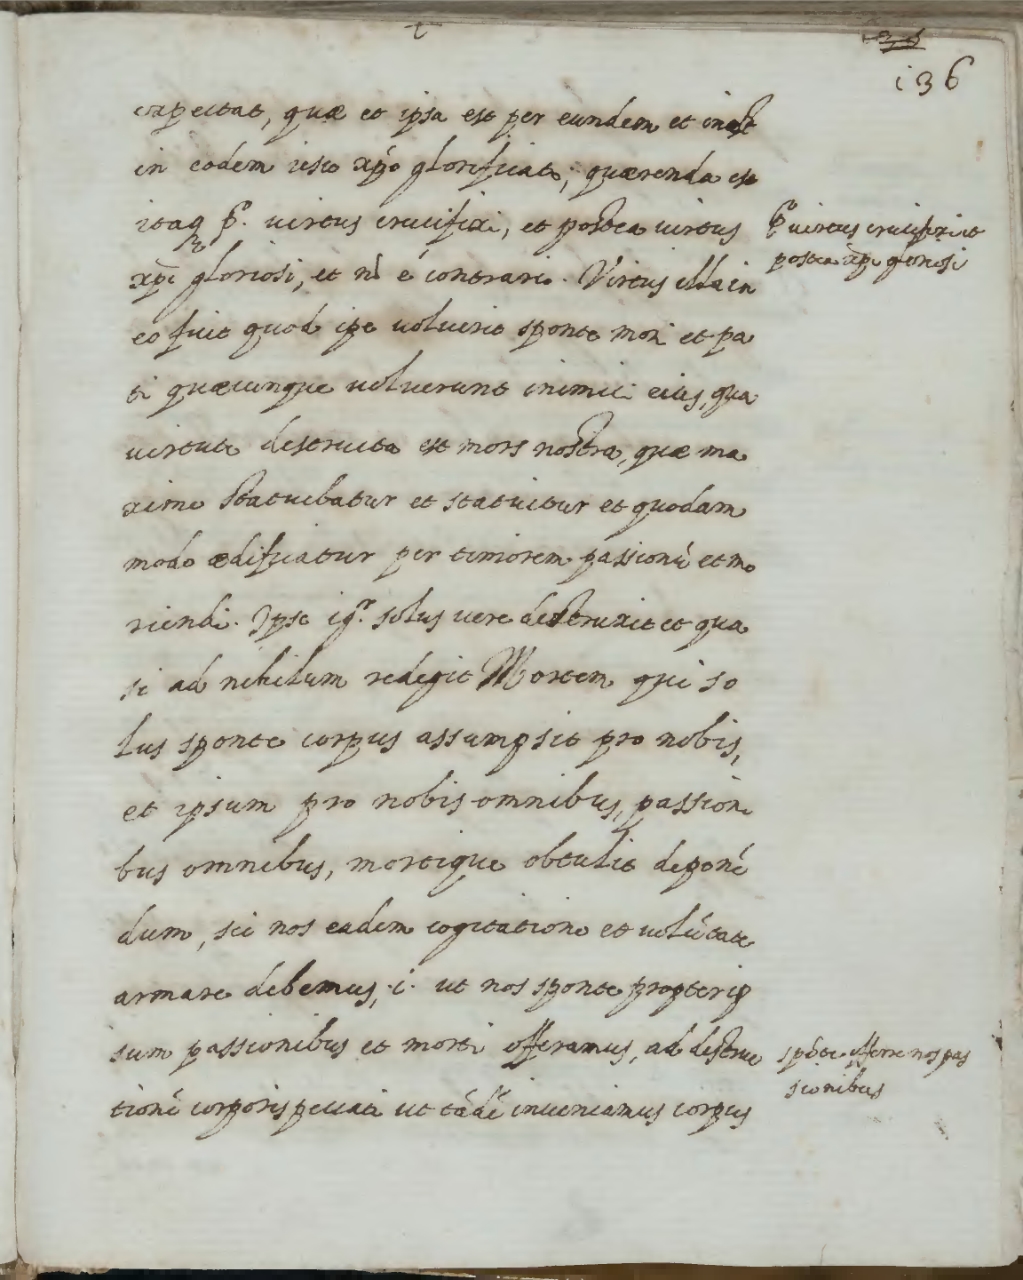 136
expectat, quæ et ipsa est per eundem et inest
in eodem iesu xp̃o glorificato; quærenda est
itaq p.º uirtus crucifixi, et postea uirtus
xp̃i gloriosi, et nõ è contrario. Virtus illa in
eo fuit quod ipe uoluerit sponte mori et pa
ti quæcunque uoluerunt inimici eius, qua
uirtute destructa est mors nostra, quæ ma
xime statuebatur et statuitur et quodam
modo ædificatur per timorem passionũ et mo
riendi. Ipse ig.r solus uere destruxit et qua
si ad nihilum redegit Mortem qui so
lus sponte corpus assumpsit pro nobis,
et ipsum pro nobis omnibus, passioni
bus omnibus, mortique obtulit deponẽ
dum, sic nos eadem cogitatione et uolũtate
armare debemus, .i. ut nos sponte propter ip
sum passionibus et morti offeramus, ad destruc
tionẽ corporis peccati ut tãdẽ inueniamus corpus
p.º uirtus crucifixi et
postea xp̃i gloriosi
spõte offerre nos pas
sionibus